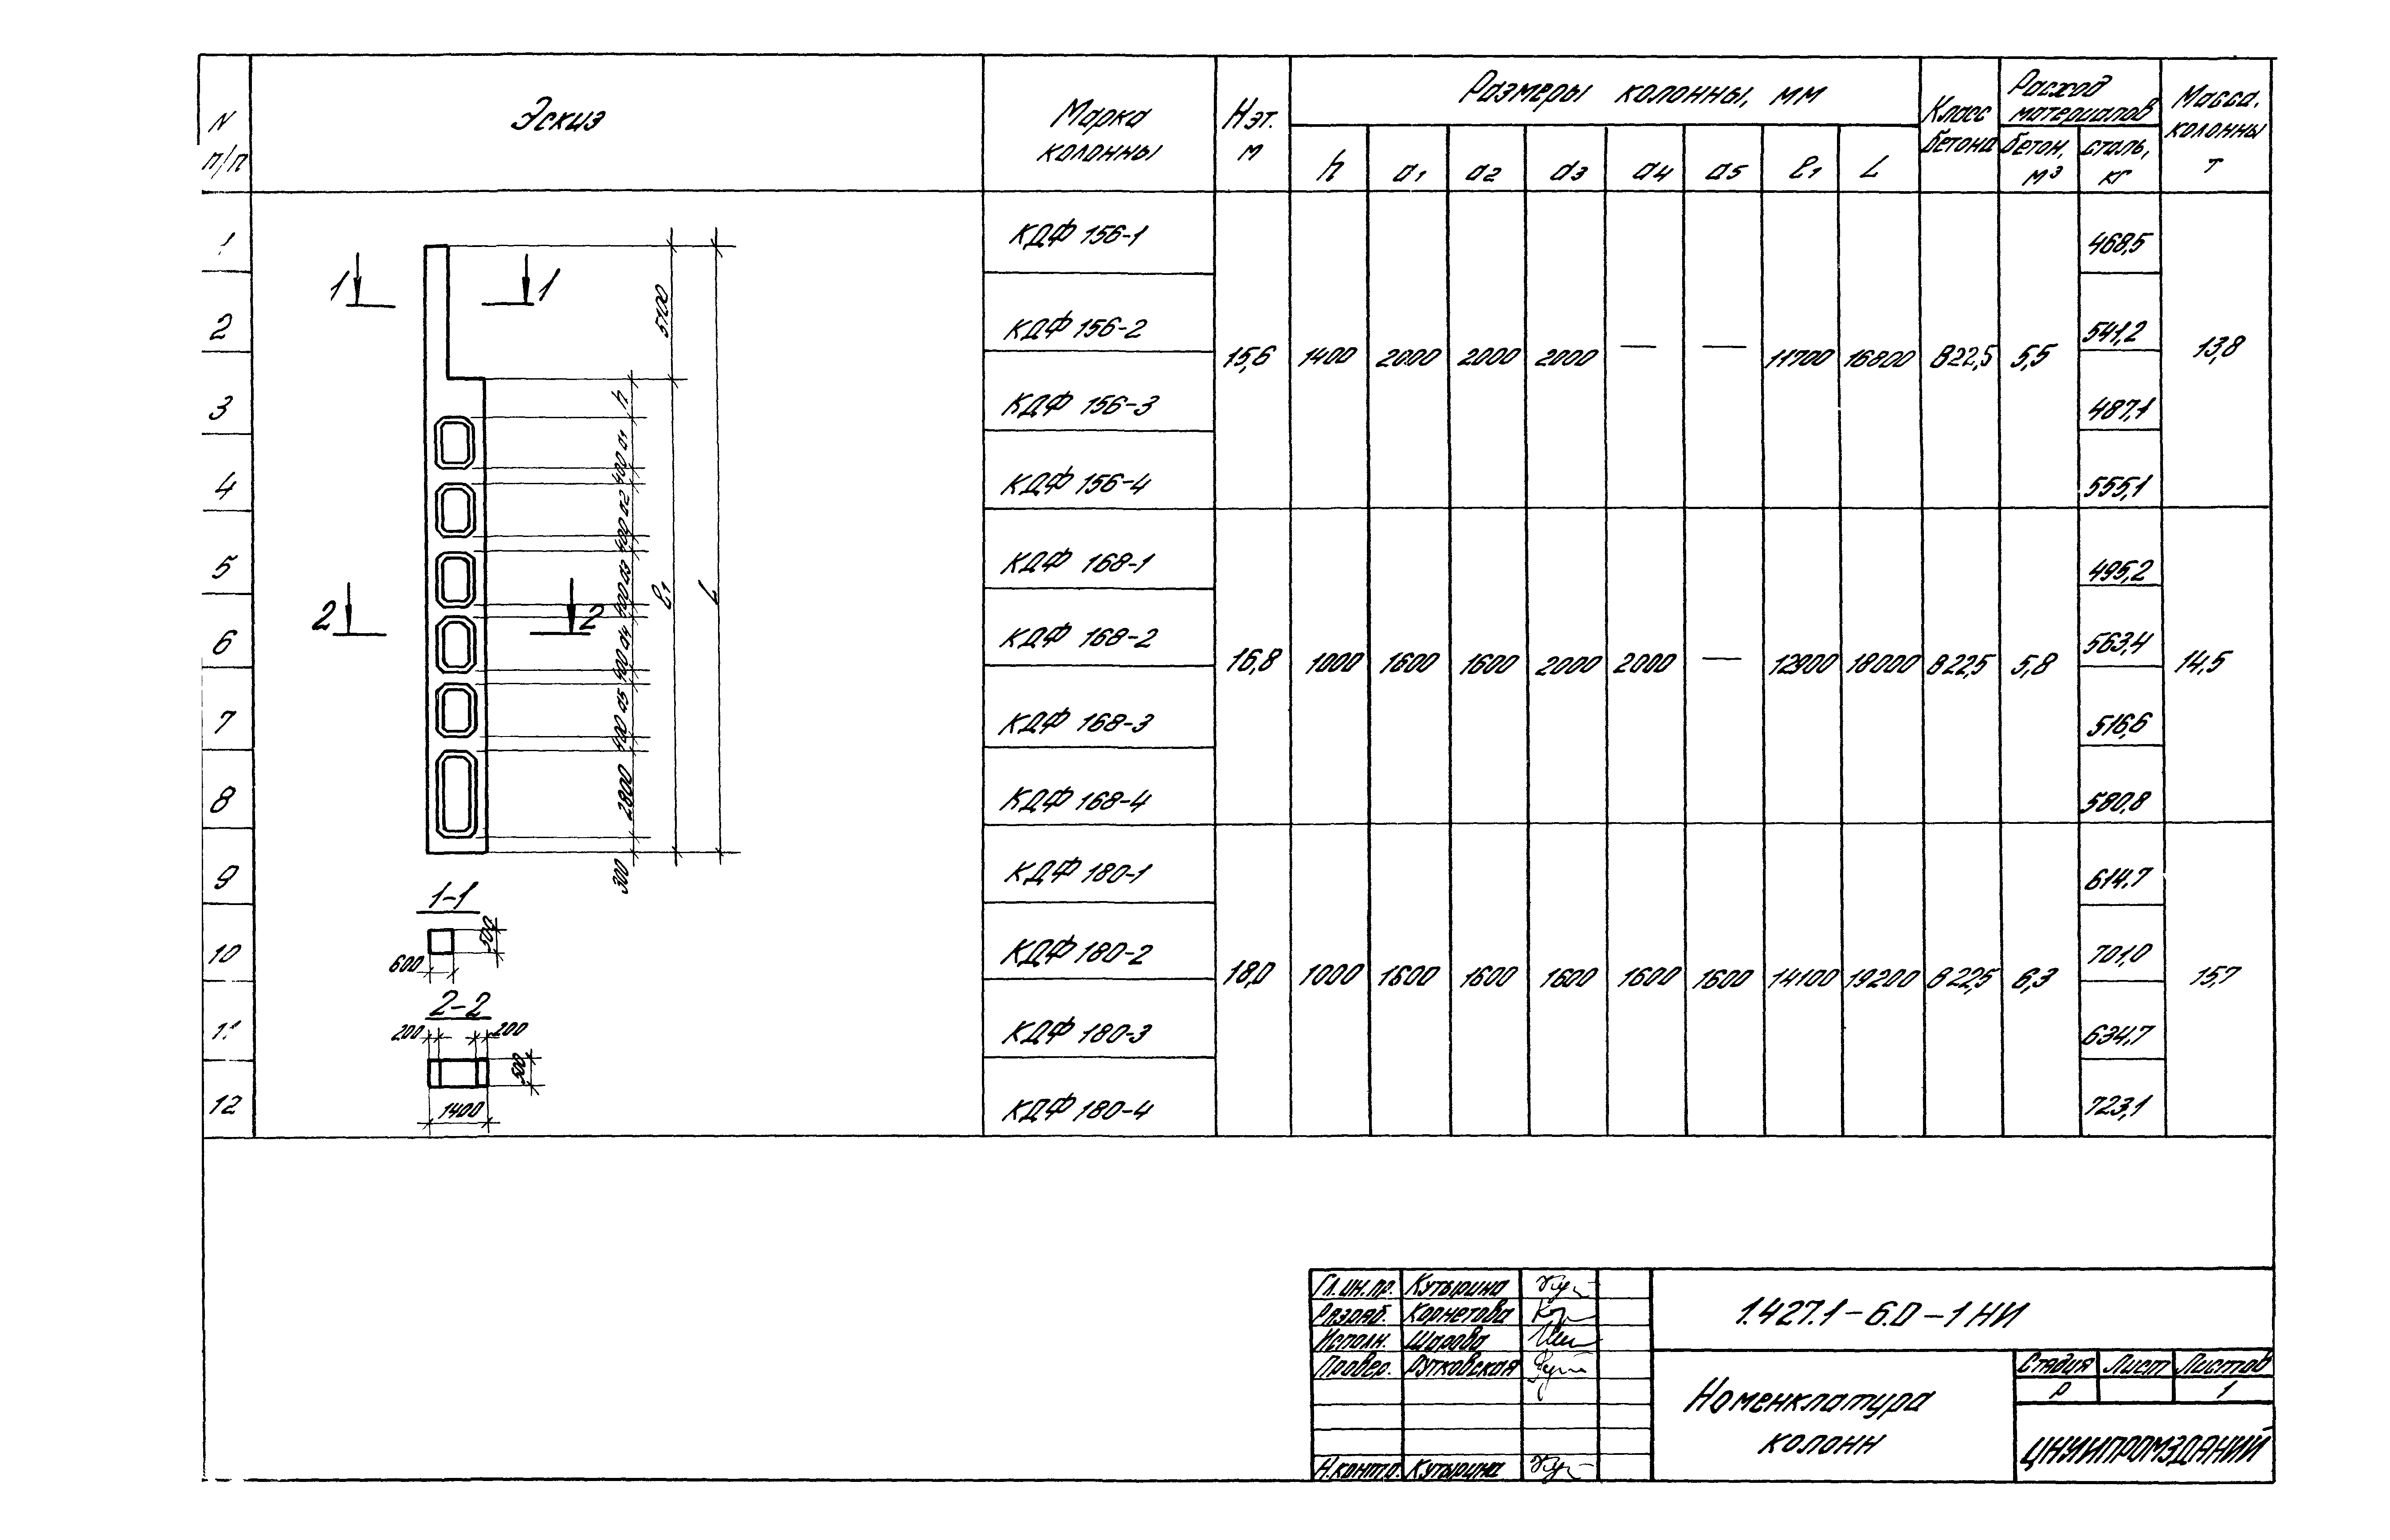 N п/п
Эскиз
Марка колонны
Hэт. м
Размеры колонны, мм
h a1 a2 a3 a4 a5 ℓ1 L
Класс бетона
Расход материалов
бетон, м³
сталь, кг
Масса колонны т
1 КДФ 156-1 468,5
2 КДФ 156-2 541,2
15,6 1400 2000 2000 2000 — — 11700 16800 В22,5 5,5 13,8
3 КДФ 156-3 487,1
4 КДФ 156-4 555,1
5 КДФ 168-1 495,2
6 КДФ 168-2 563,4
16,8 1000 1600 1600 2000 2000 — 12900 18000 В22,5 5,8 14,5
7 КДФ 168-3 516,6
8 КДФ 168-4 580,8
9 КДФ 180-1 614,7
10 КДФ 180-2 701,0
18,0 1000 1600 1600 1600 1600 1600 14100 19200 В22,5 6,3 15,7
11 КДФ 180-3 634,7
12 КДФ 180-4 723,1
1 1
2 2
5100
h
a1
400
a2
400
a3
400
a4
400
a5
400
2800
300
ℓ1
L
1-1
500
600
2-2
200 200
500
1400
Гл.ин.пр. Кутырина
Разраб. Корнетова
Исполн. Шарова
Провер. Рутковская
Н.контр. Кутырина
1.427.1-6.0-1НИ
Номенклатура
колонн
Стадия Лист Листов
Р 1
ЦНИИПРОМЗДАНИЙ